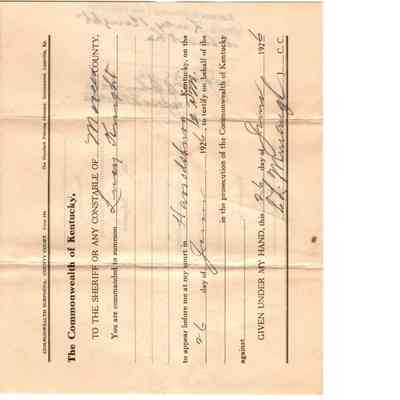 COMMONWEALTH SUBPOENA, COUNTY COURT.
The Standard Printing Company, Incorporated, Louisville, Ky.
The Commonwealth of Kentucky,
TO THE SHERIFF OR ANY CONSTABLE OF Mercer COUNTY,
You are commanded to summon Lucy Knight
to appear before me at my court in Harrodsburg Kentucky, on the
26 day of June 1926, to testify on behalf of the
in the prosecution of the Commonwealth of Kentucky
against
GIVEN UNDER MY HAND, this 26 day of June 1926
C. C.